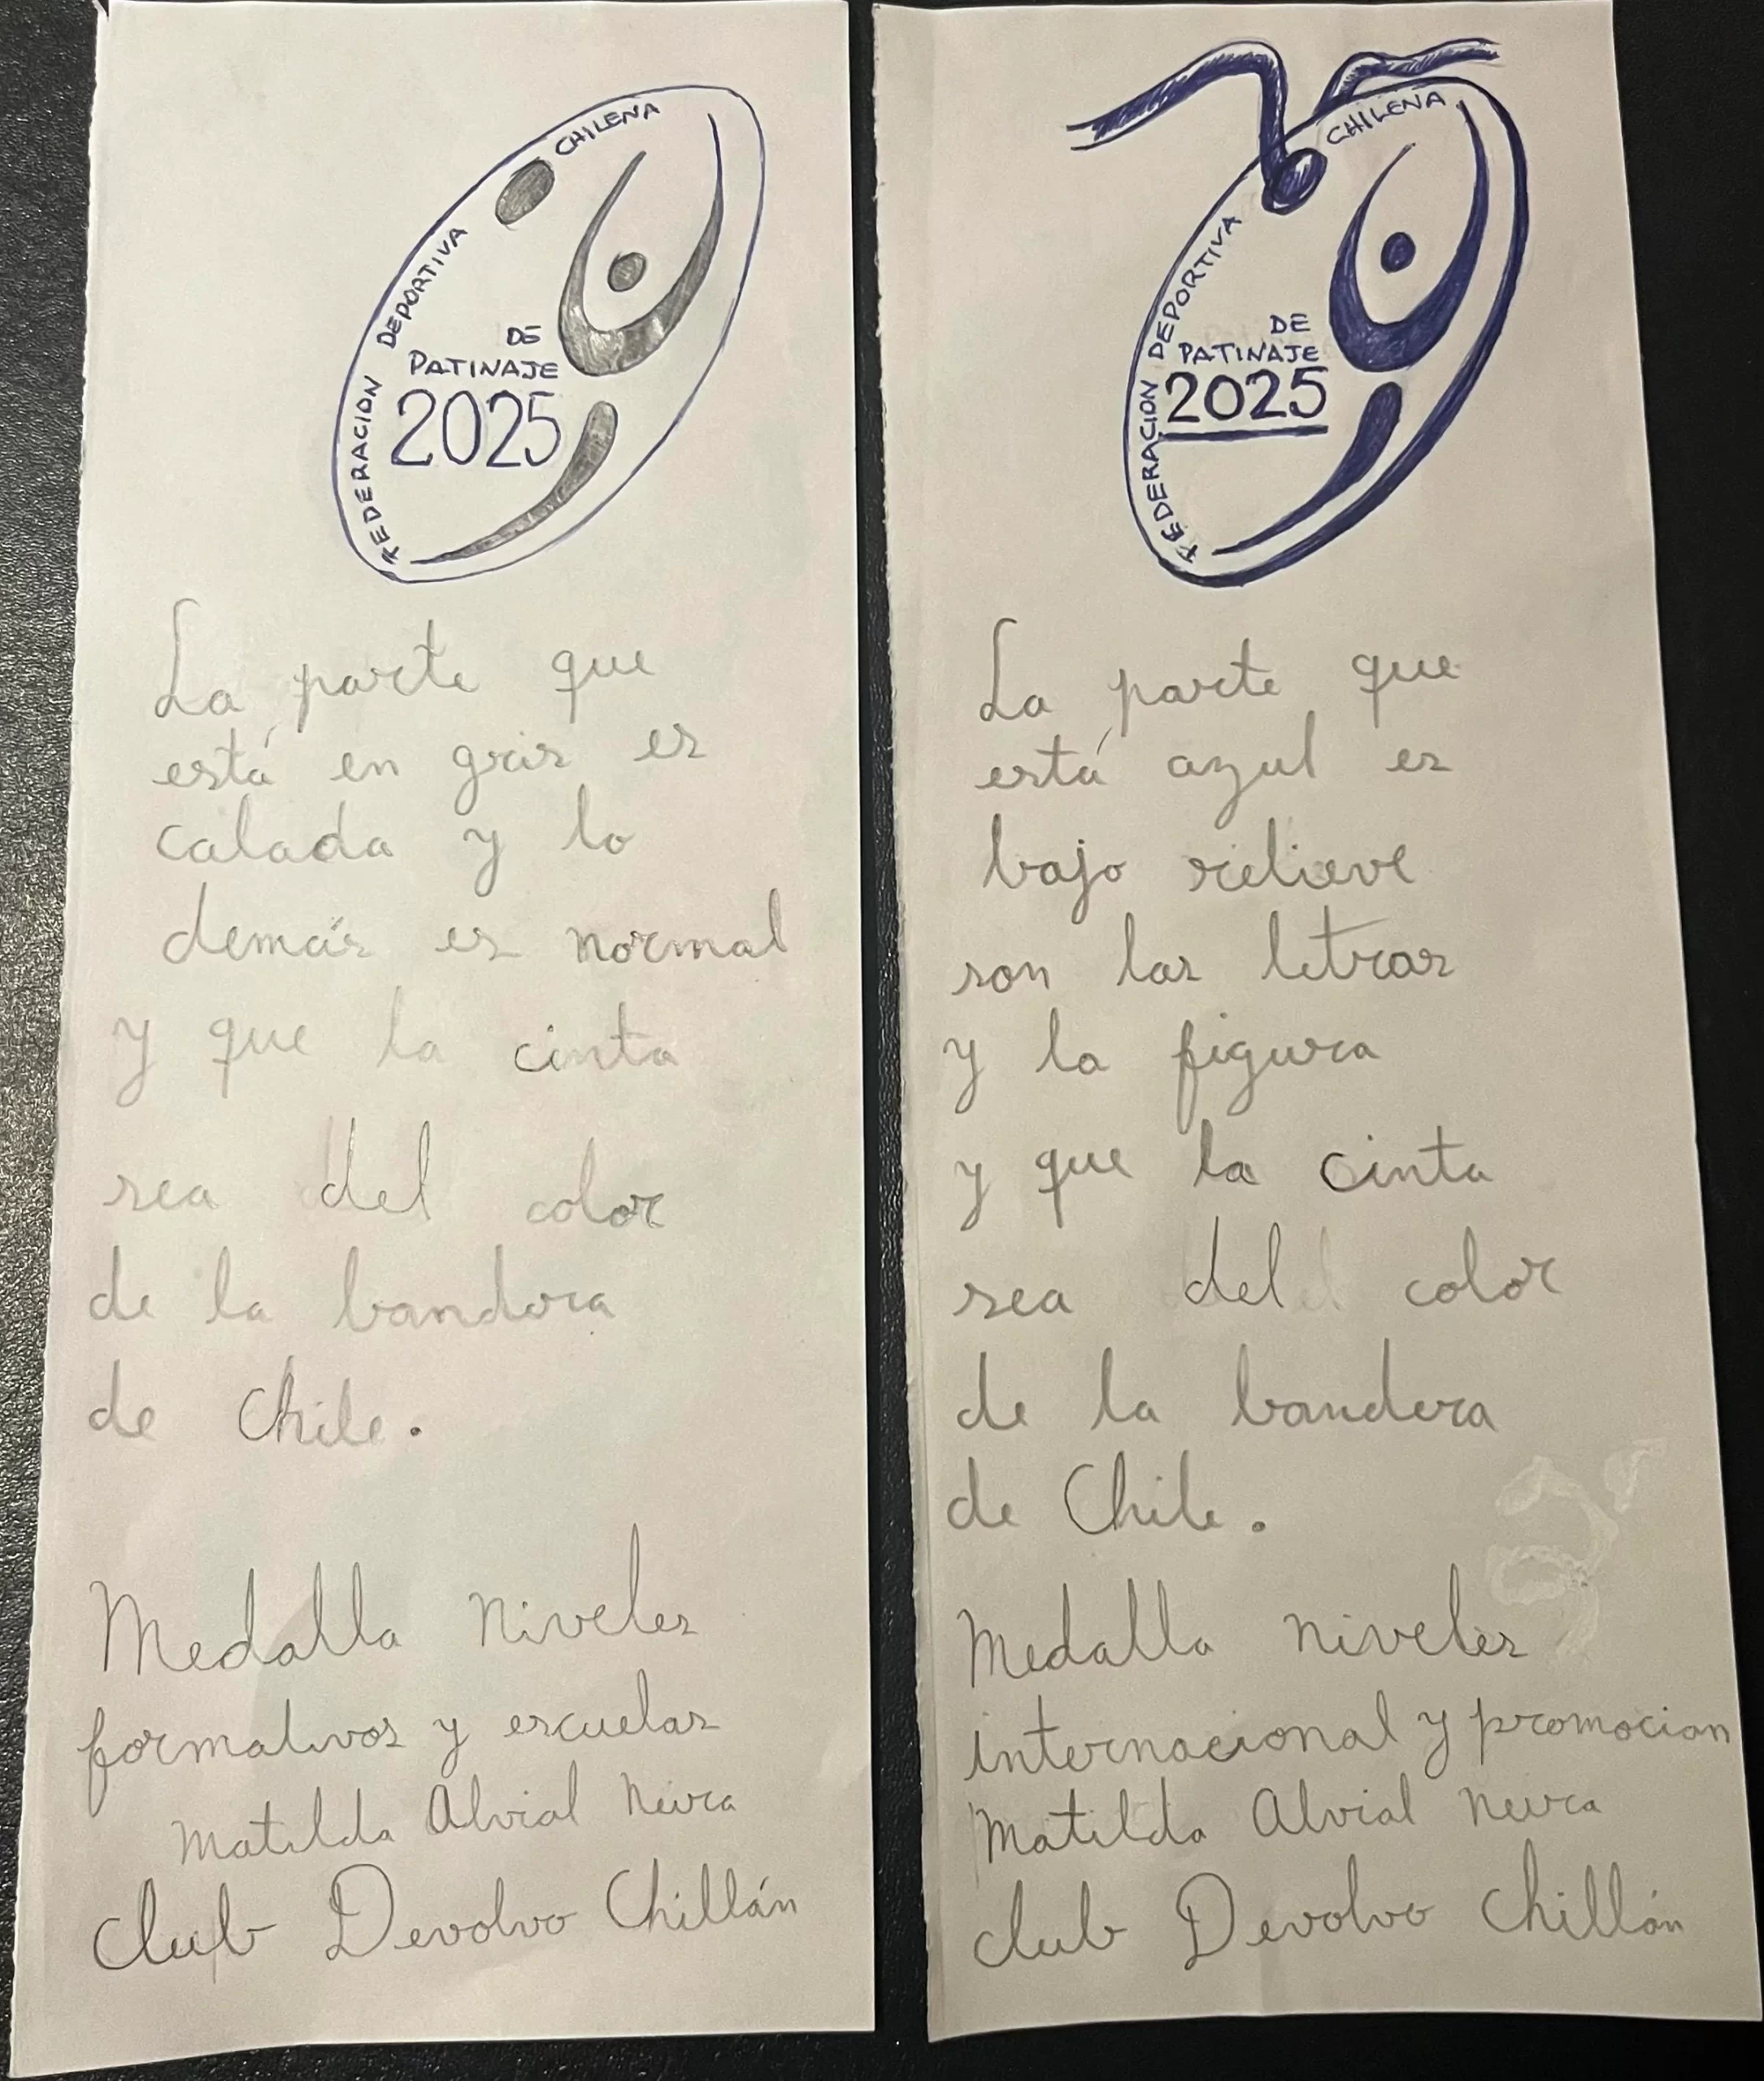 FEDERACION DEPORTIVA CHILENA
DE
PATINAJE
2025
La parte que
está en gris es
calada y lo
demás es normal
y que la cinta
sea del color
de la bandera
de Chile.
Medalla Niveles
formativos y escuelas
Matilda Alvial Neira
Club Devolvo Chillán
FEDERACION DEPORTIVA CHILENA
DE
PATINAJE
2025
La parte que
está azul es
bajo relieve
son las letras
y la figura
y que la cinta
sea del color
de la bandera
de Chile.
Medalla niveles
internacional y promocion
Matilda Alvial Neira
club Devolvo Chillán